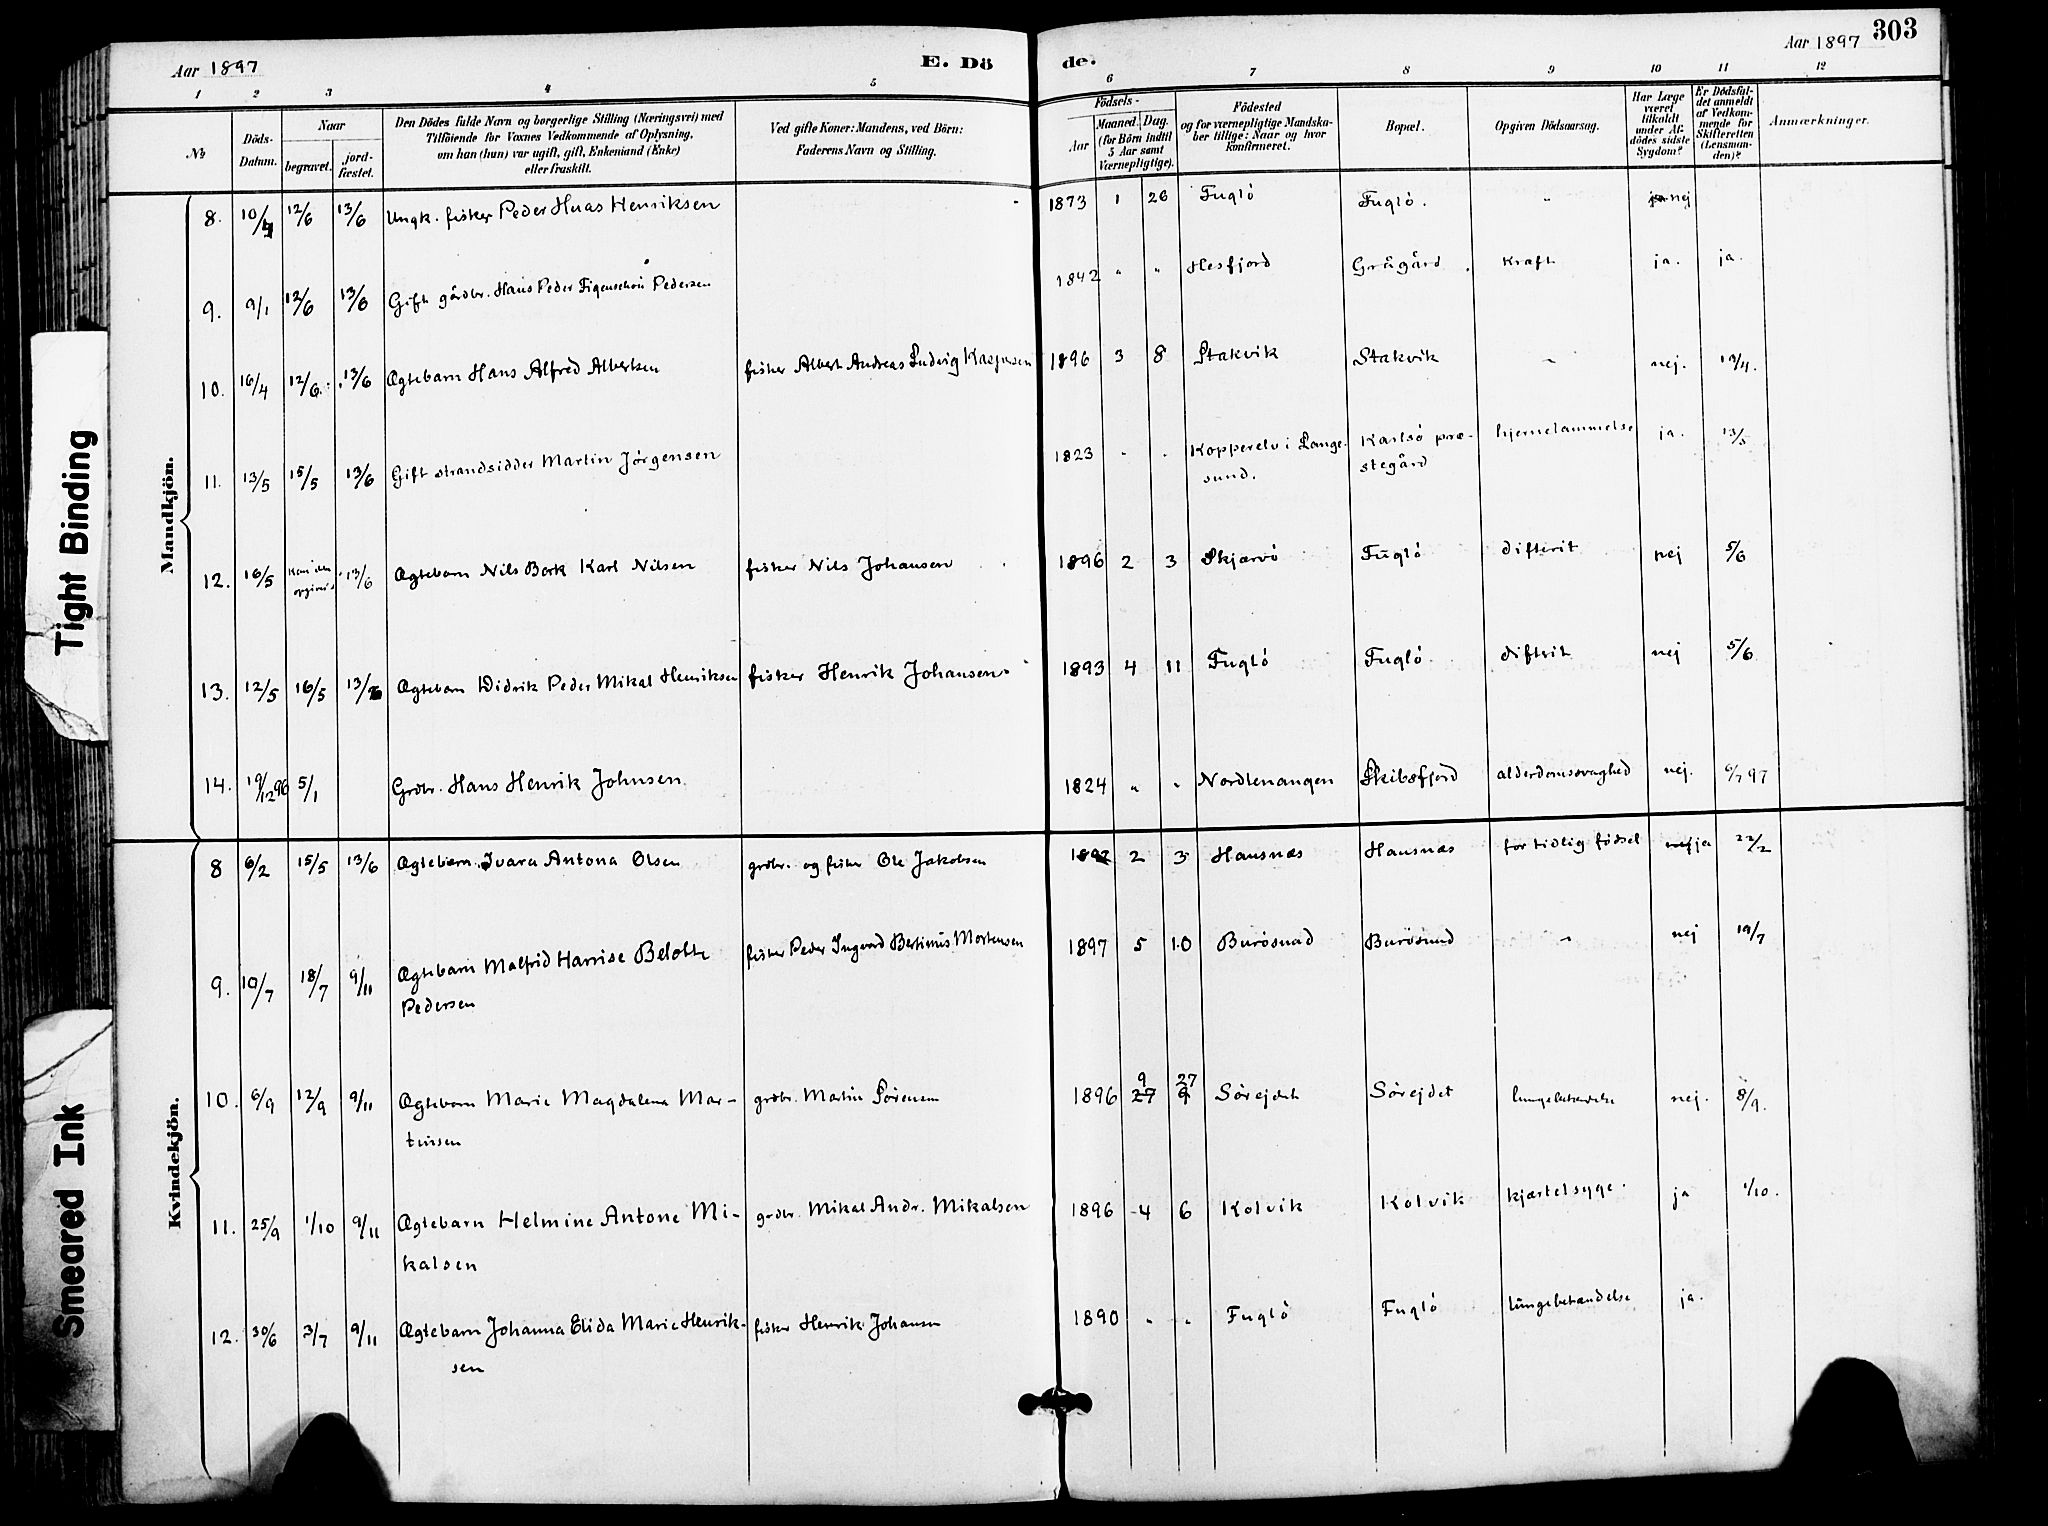 303
Aar 1897 E. Dö de. Aar 1897
1 2 3 4 5 6 7 8 9 10 11 12
№
Döds-Datum.
Naar
begravet.
jord-fæstet.
Den Dödes fulde Navn og borgerlige Stilling (Næringsvei) med
Tilföiende for Voxnes Vedkommende af Oplysning,
om han (hun) var ugift, gift, Enkemand (Enke)
eller fraskilt.
Ved gifte Koner: Mandens, ved Börn:
Faderens Navn og Stilling.
Födsels-
Aar
Maaned. Dag.
(for Börn indtil
5 Aar samt
Værnepligtige).
Födested
og for værnepligtige Mandska-
ber tillige: Naar og hvor
konfirmeret.
Bopæl.
Opgiven Dödsaarsag.
Har Læge
været
tilkaldt
under Af-
dödes sidste
Sygdom?
Er Dödsfal-
det anmeldt
af Vedkom-
mende for
Skifteretten
(Lensman-
den)?
Anmærkninger.
Mandkjön.
8. 10/4 12/6 13/6 Ungk. fisker Peder Henriksen 1873 1 26 Fuglö Fuglö. " nej
9. 9/1 12/6 13/6 Gift gårdbr. Hans Peder Figenschou Pedersen 1842 " " Hesfjord Grågård kræft ja. ja.
10. 16/4 12/6 13/6 Ægtebarn Hans Alfred Albertsen fisker Albert Andreas Ludvig Kaspersen 1896 3 8 Stakvik Stakvik " nej. 19/4.
11. 13/5 15/5 13/6 Gift strandsidder Martin Jörgensen 1823 " " Kopperelv i Lange- Karlsö præ- hjernelammelse ja. 13/5
sund. stegård
12. 16/5 13/6 Ægtebarn Nils Berk Karl Nilsen fisker Nils Johansen 1896 2 3 Skjærvö Fuglö difterit nej 5/6
13. 12/5 16/5 13/6 Ægtebarn Didrik Peder Mikal Henriksen fisker Henrik Johansen 1893 4 11 Fuglö Fuglö diftrit nej 5/6
14. 19/12 96 5/1 Grdbr. Hans Henrik Johnsen 1824 " " Nordlenangen Skibsfjord alderdomssvaghed nej. 6/7 97
Kvindekjön.
8 6/2 15/5 13/6 Ægtebarn Ivara Antona Olsen grdbr. og fisker Ole Jakobsen 1897 2 3 Hansnæs Hansnæs for tidlig födsel ja 22/2
9. 10/7 18/7 9/11 Ægtebarn Malfrid Hansine Belotte fisker Peder Ingvard Bertinus Mortensen 1897 5 10 Burösund Burösund " nej 19/7
Pedersen
10. 6/9 12/9 9/11 Ægtebarn Marie Magdalena Mar- grdbr. Martin Sörensen 1896 9 27 Sörejdet Sörejdet lungebetændelse nej. 8/9.
27 9
tinsen
11. 25/9 1/10 9/11 Ægtebarn Helmine Antone Mi- grdbr. Mikal Andr. Mikalsen 1896 4 6 Kolvik Kolvik kjertelsyge. ja 1/10.
kalsen
12. 30/6 3/7 9/11 Ægtebarn Johanna Elida Marie Henrik- fisker Henrik Johansen 1890 " " Fuglö Fuglö lungebetændelse ja.
sen
Tight Binding
Smeared Ink